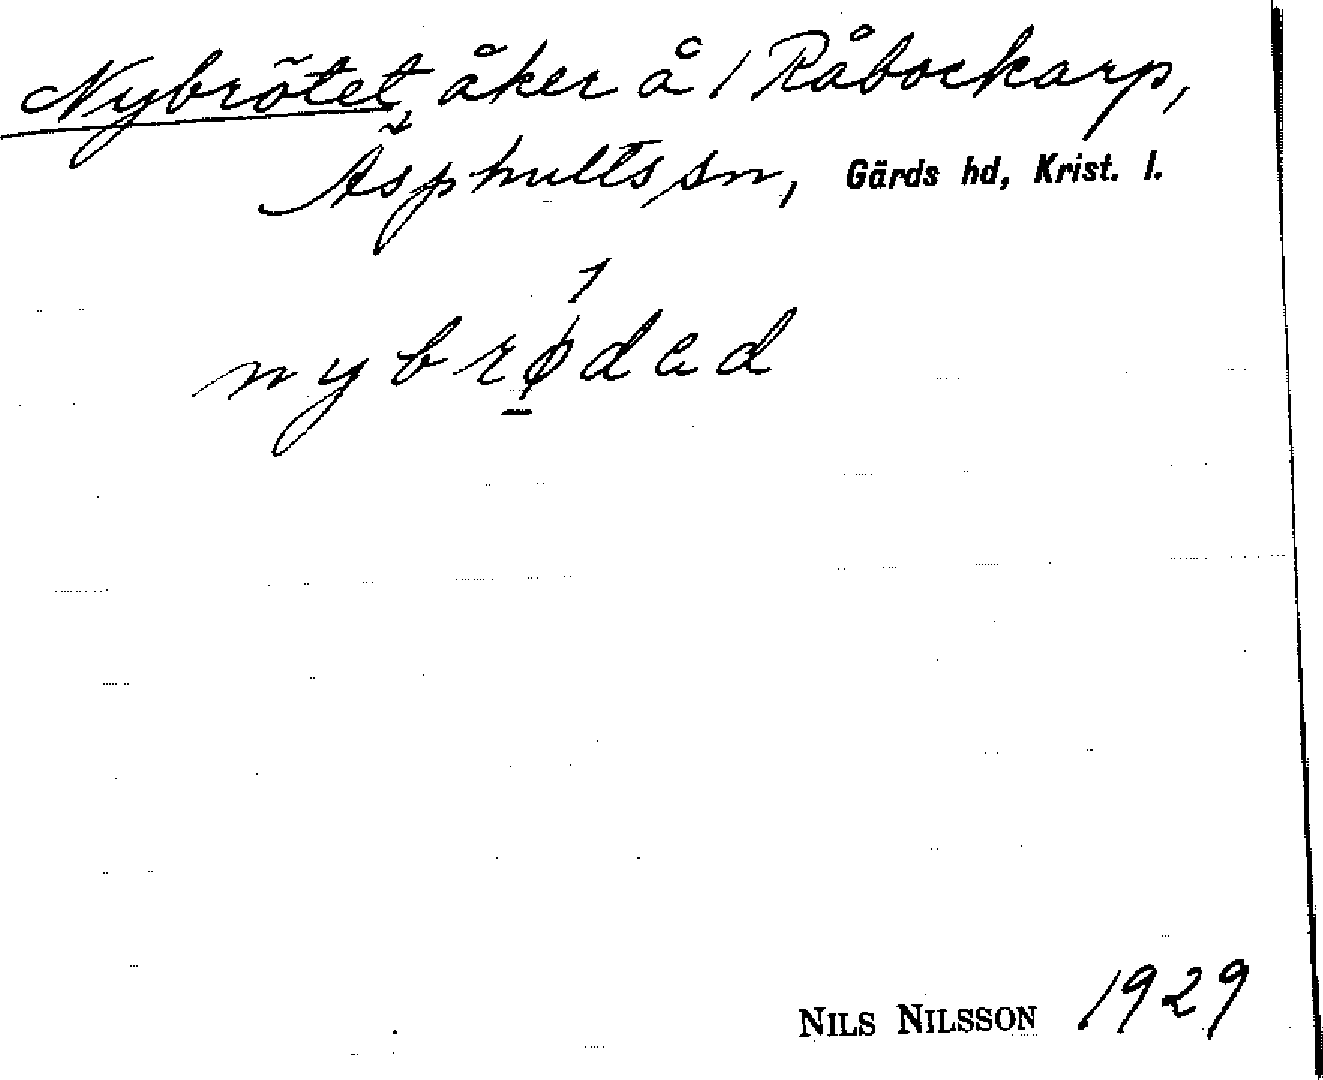 Nybrötet, åker å 1 Råbockarp,
Äsphults sn, Gärds hd, Krist. l.
nybrødad
NILS NILSSON 1929